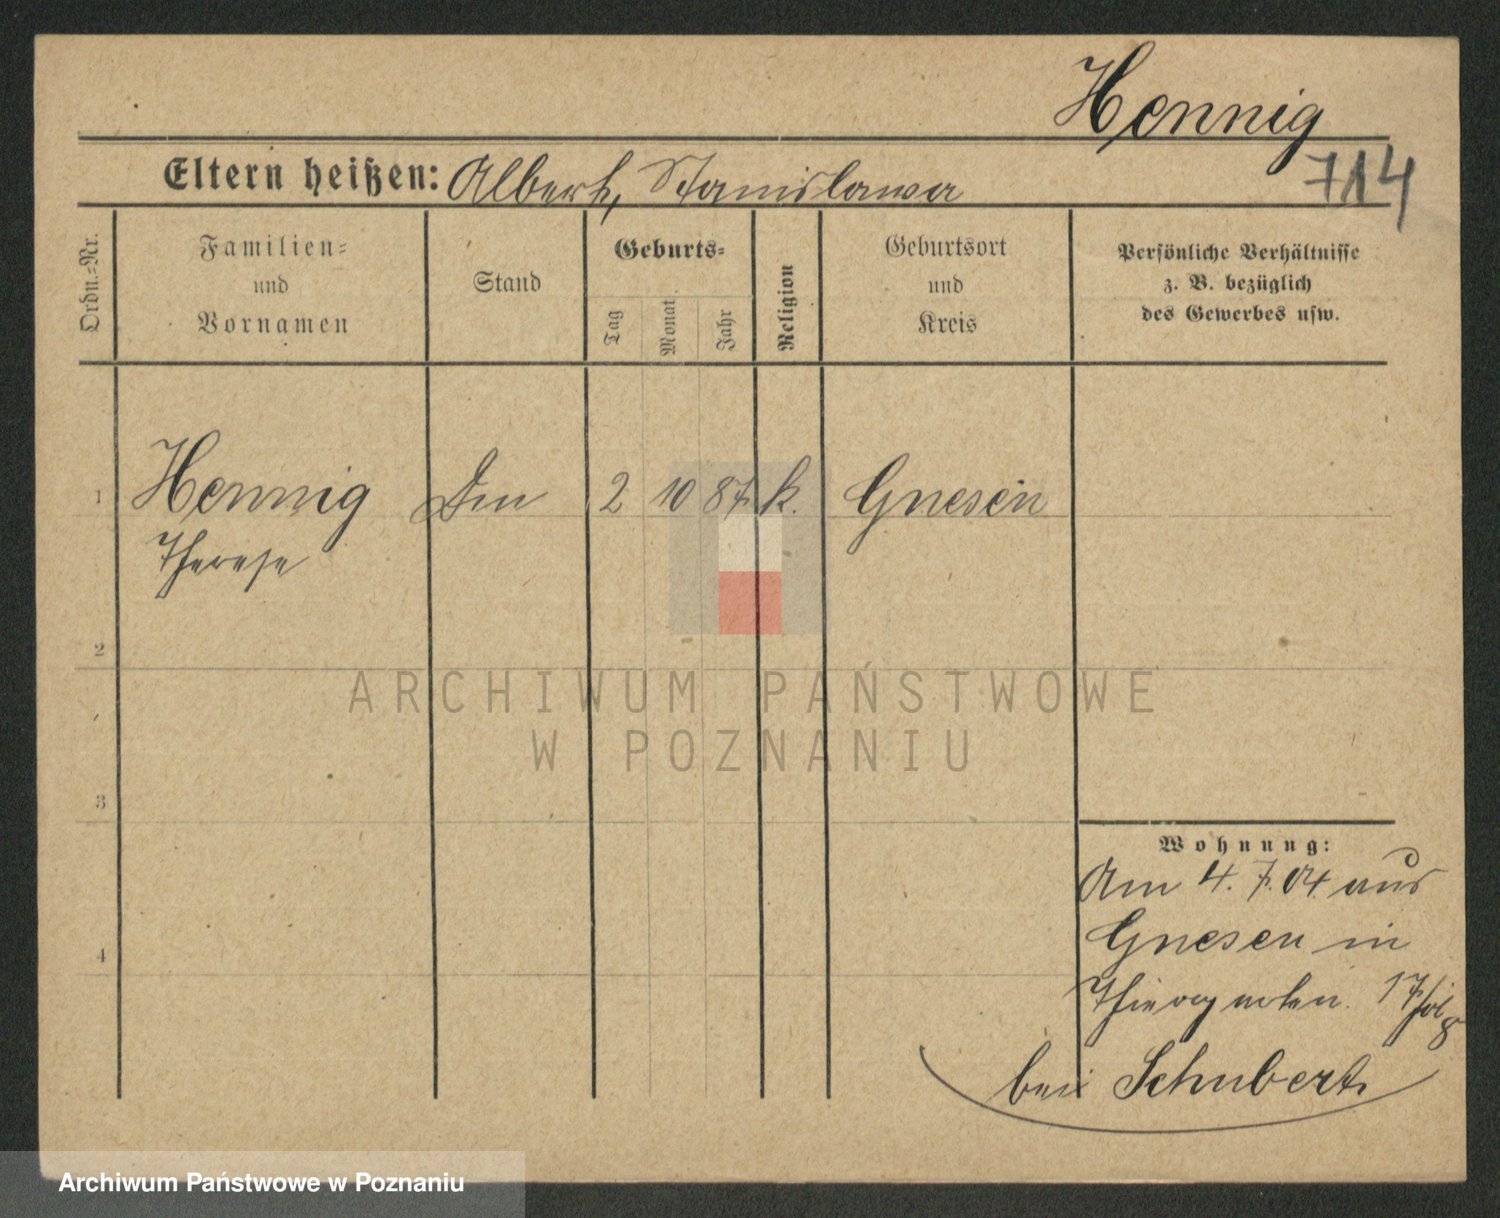 Hennig
714
Eltern heißen: Albert, Stanislawa
Ordn.=Nr.
Familien=
und
Vornamen
Stand
Geburts=
Tag
Monat
Jahr
Religion
Geburtsort
und
Kreis
Persönliche Verhältnisse
z. B. bezüglich
des Gewerbes usw.
1 Hennig 2 10 87 k. Gnesen
Therese
2
3
4
Wohnung:
Am 4. 7. 04 aus
Gnesen in
17
bei Schubert
ARCHIWUM PAŃSTWOWE
W POZNANIU
Archiwum Państwowe w Poznaniu